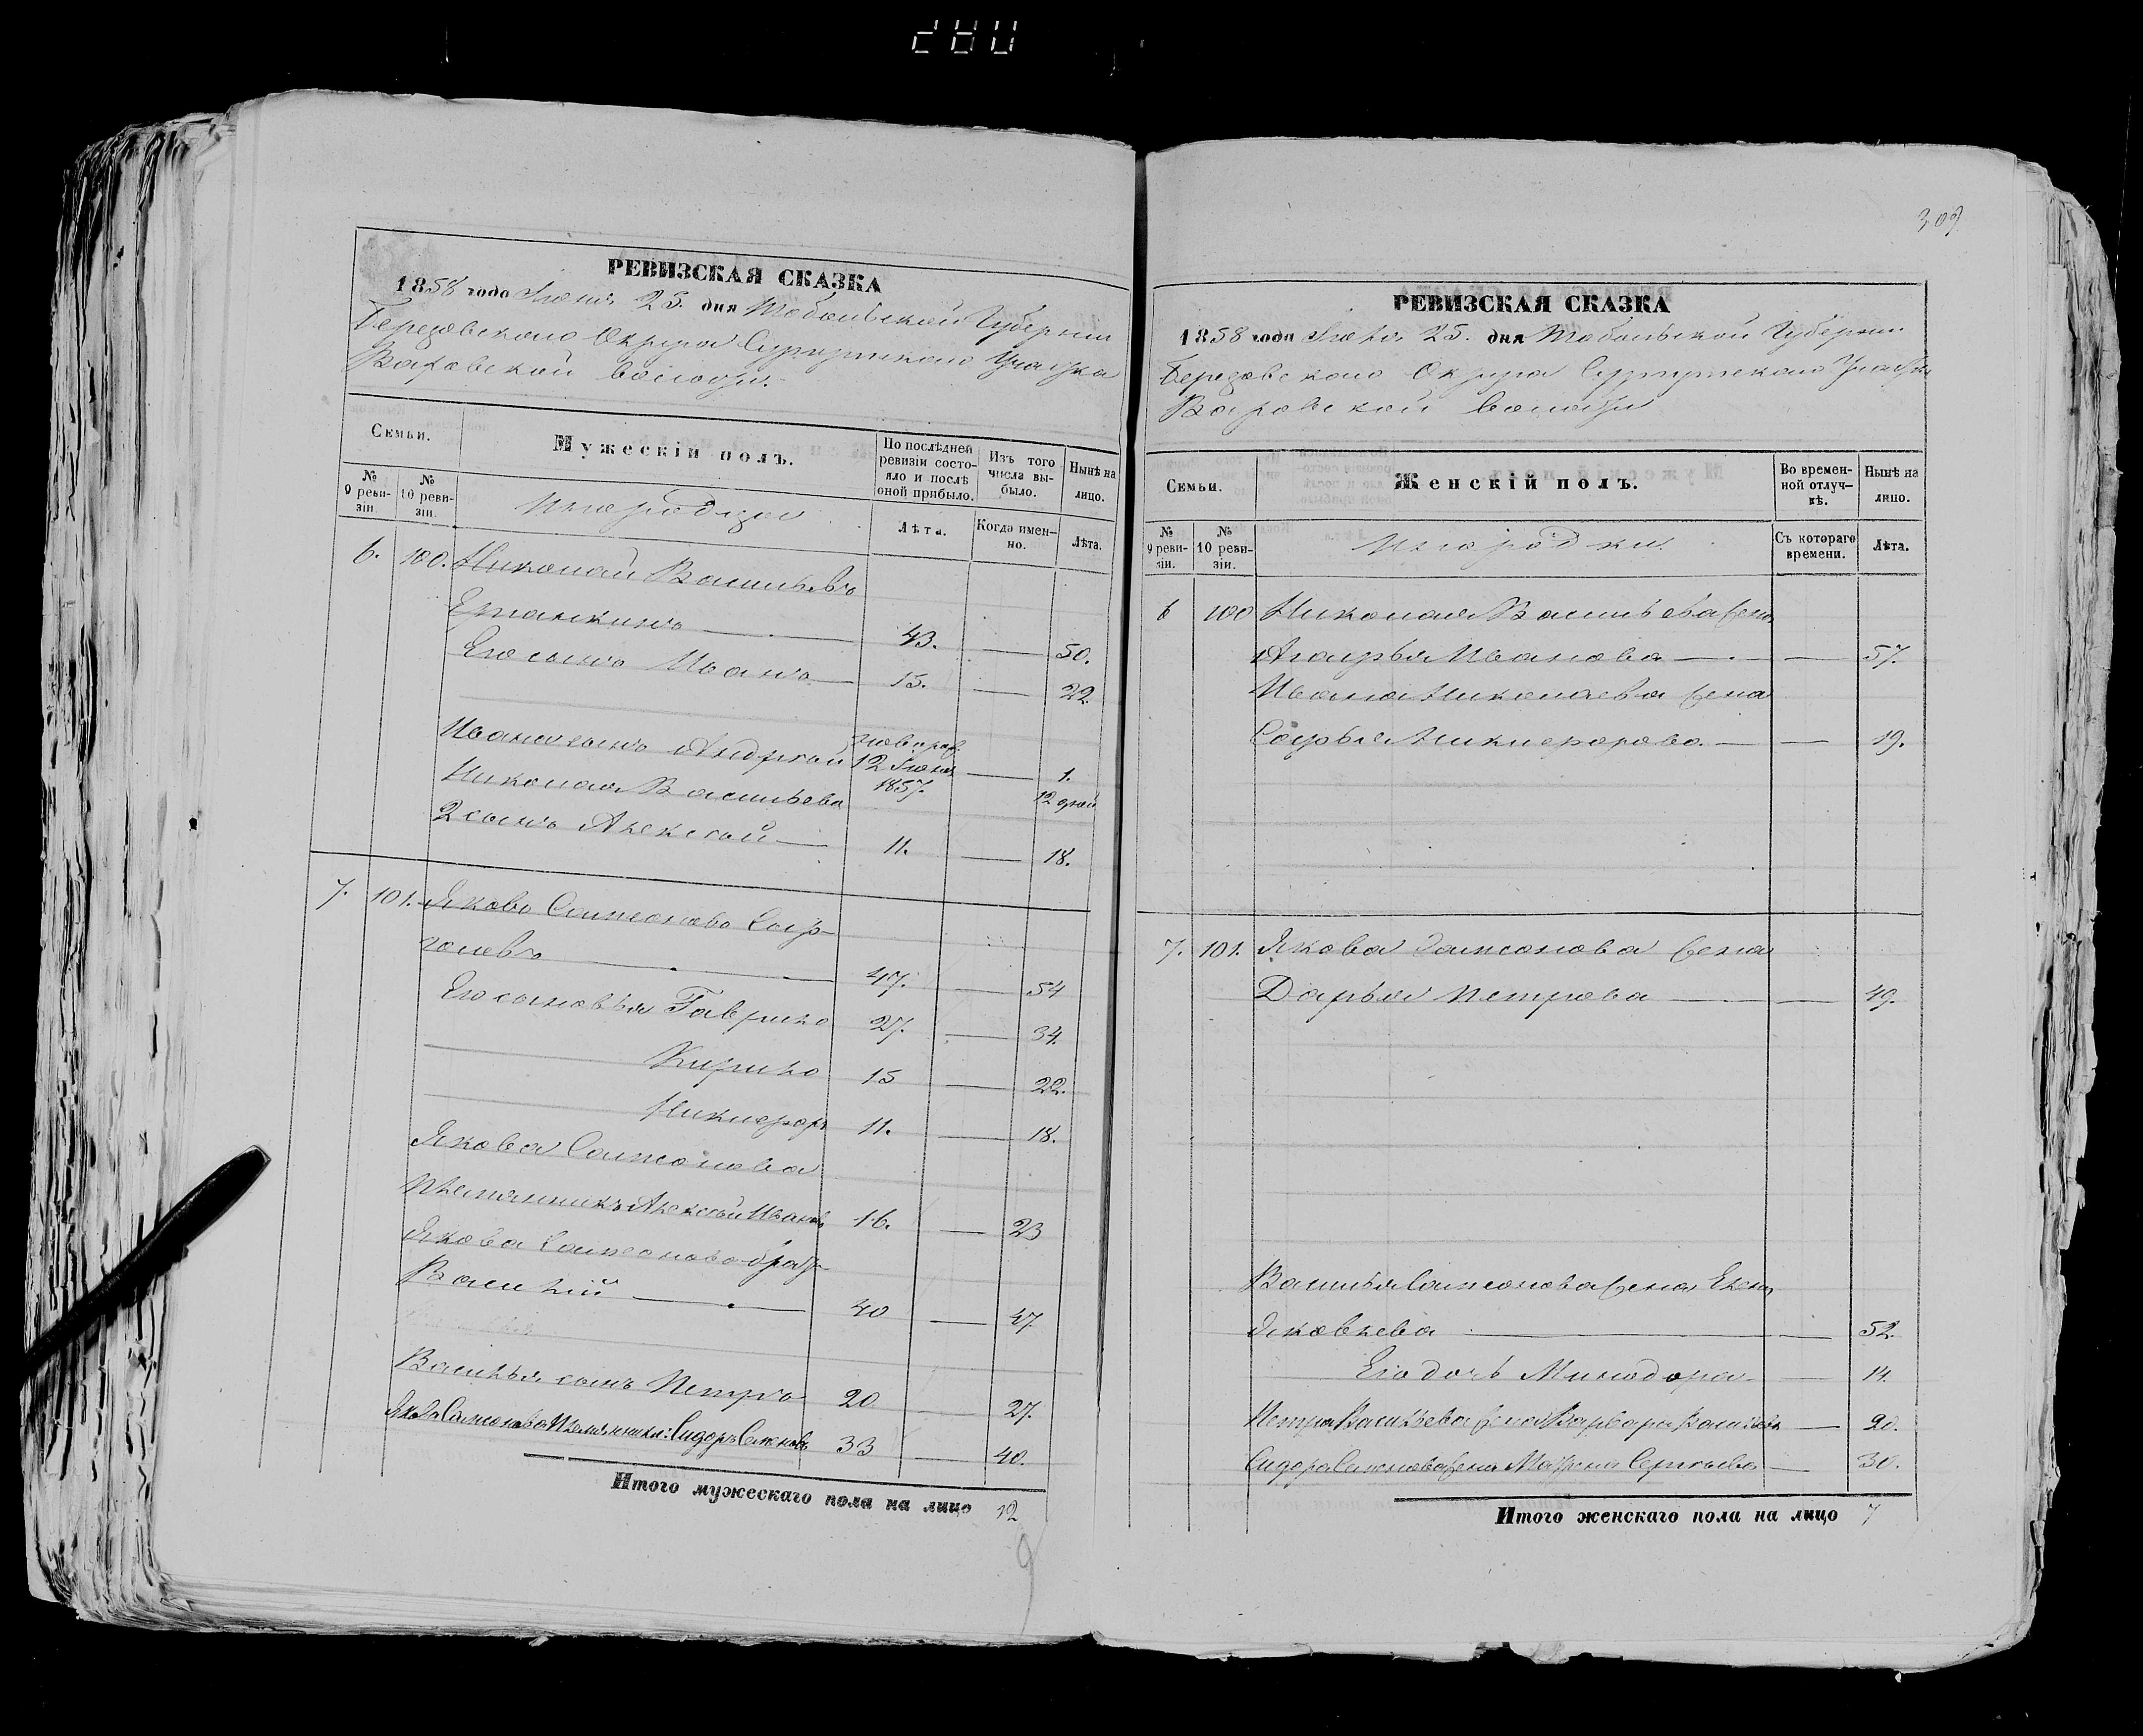 309
РЕВИЗСКАЯ СКАЗКА
1858 года Июня 25. дня Тобольской Губернiи
Березовскаго Округа Сургутскаго Участка
Ваховской волости.
Семьи.
Мужескiй полъ.
По послѣдней ревизiи состояло и послѣ оной прибыло.
Изъ того числа выбыло.
Нынѣ на лицо.
№ 9 ревизiи.
№ 10 ревизiи.
Инородцы
Лѣта.
Когда именно.
Лѣта.
6. 100. Николай Васильевъ
43. 50.
Его сынъ Иванъ 15. 22.
Ивана сынъ Андрей
12 Июня 1. 
1857. 12 дней
Николая Васильева
2 сынъ Алексей 11. 18.
7. 101. Яковъ Самсоновъ
47. 54
Его сыновья Гаврило 27. 34.
Кирило 15 22.
Никифоръ 11. 18.
Якова Самсонова
Племянникъ Алексей Ивановъ 16. 23
Якова Самсонова братъ
Василiй 40 47.
Василья сынъ Петръ 20 27.
Якова Самсонова Сидоръ 33 40.
Итого мужескаго пола на лицо 12
9
РЕВИЗСКАЯ СКАЗКА
1858 года Июня 25. дня Тобольской Губернiи
Березовскаго Округа Сургутскаго Участка
Ваховской волости
Семьи.
Женскiй полъ.
Во временной отлучкѣ.
Нынѣ на лицо.
№ 9 ревизiи.
№ 10 ревизiи.
Инородки.
Съ котораго времени.
Лѣта.
6 100 Николая Васильева жена
Агафья Иванова 57.
Ивана Николаева жена
Софья Никифорова 19.
7. 101. Якова Самсонова жена
Дарья Петрова 49.
Василья Самсонова жена
Яковлева 52.
Его дочь Минодора 14.
Петра Васильева жена Варвара 20.
Сидора жена Сергеева 30.
Итого женскаго пола на лицо 7